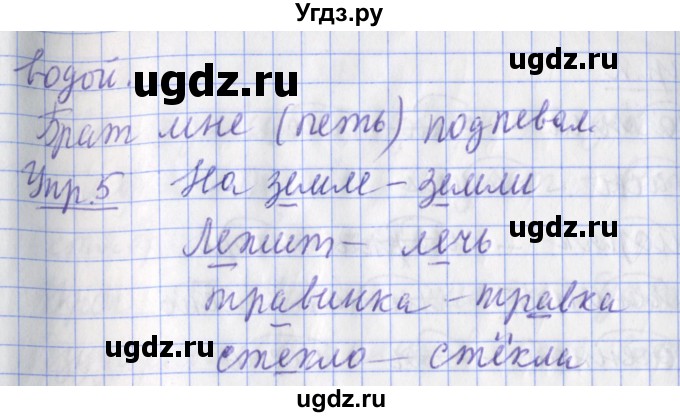 Угдз.ру
водой.
ugdz.ru
Брат мне (петь) подпевал.
ugdz.ru
Упр.5 На земле - земли
ugdz.ru
Лежит - лечь
травинка - травка
ugdz.ru
стекло - стёкла
ugdz.ru